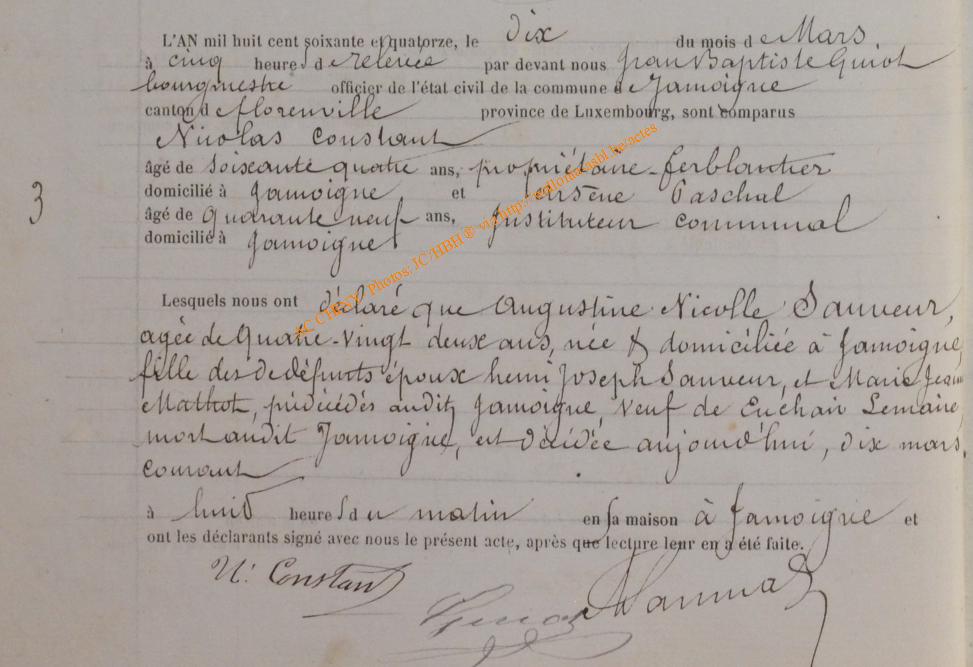 L'AN mil huit cent soixante et quatorze, le dix du mois de Mars
à cinq heures de relevée par devant nous Jean Baptiste Guiot
bourgmestre officier de l'état civil de la commune de Jamoigne
canton de florenville province de Luxembourg, sont comparus
Nicolas Constant
âgé de soixante quatre ans, propriétaire-ferblantier
domicilié à Jamoigne et Arsène Paschal
3
âgé de quarante neuf ans, Instituteur communal
domicilié à Jamoigne
Lesquels nous ont déclaré que Augustine Nicolle Sauveur,
agée de Quatre-vingt deux ans, née & domiciliée à Jamoigne,
fille des de défunts époux henri Joseph Sauveur, et Marie Jeanne
Mathot, prédécédés audit Jamoigne, veuf de Euchair Lemaire,
mort audit Jamoigne, est décédée aujourd'hui, dix mars,
courant
à huit heures du matin en sa maison à Jamoigne et
ont les déclarants signé avec nous le présent acte, après que lecture leur en a été faite.
N. Constant